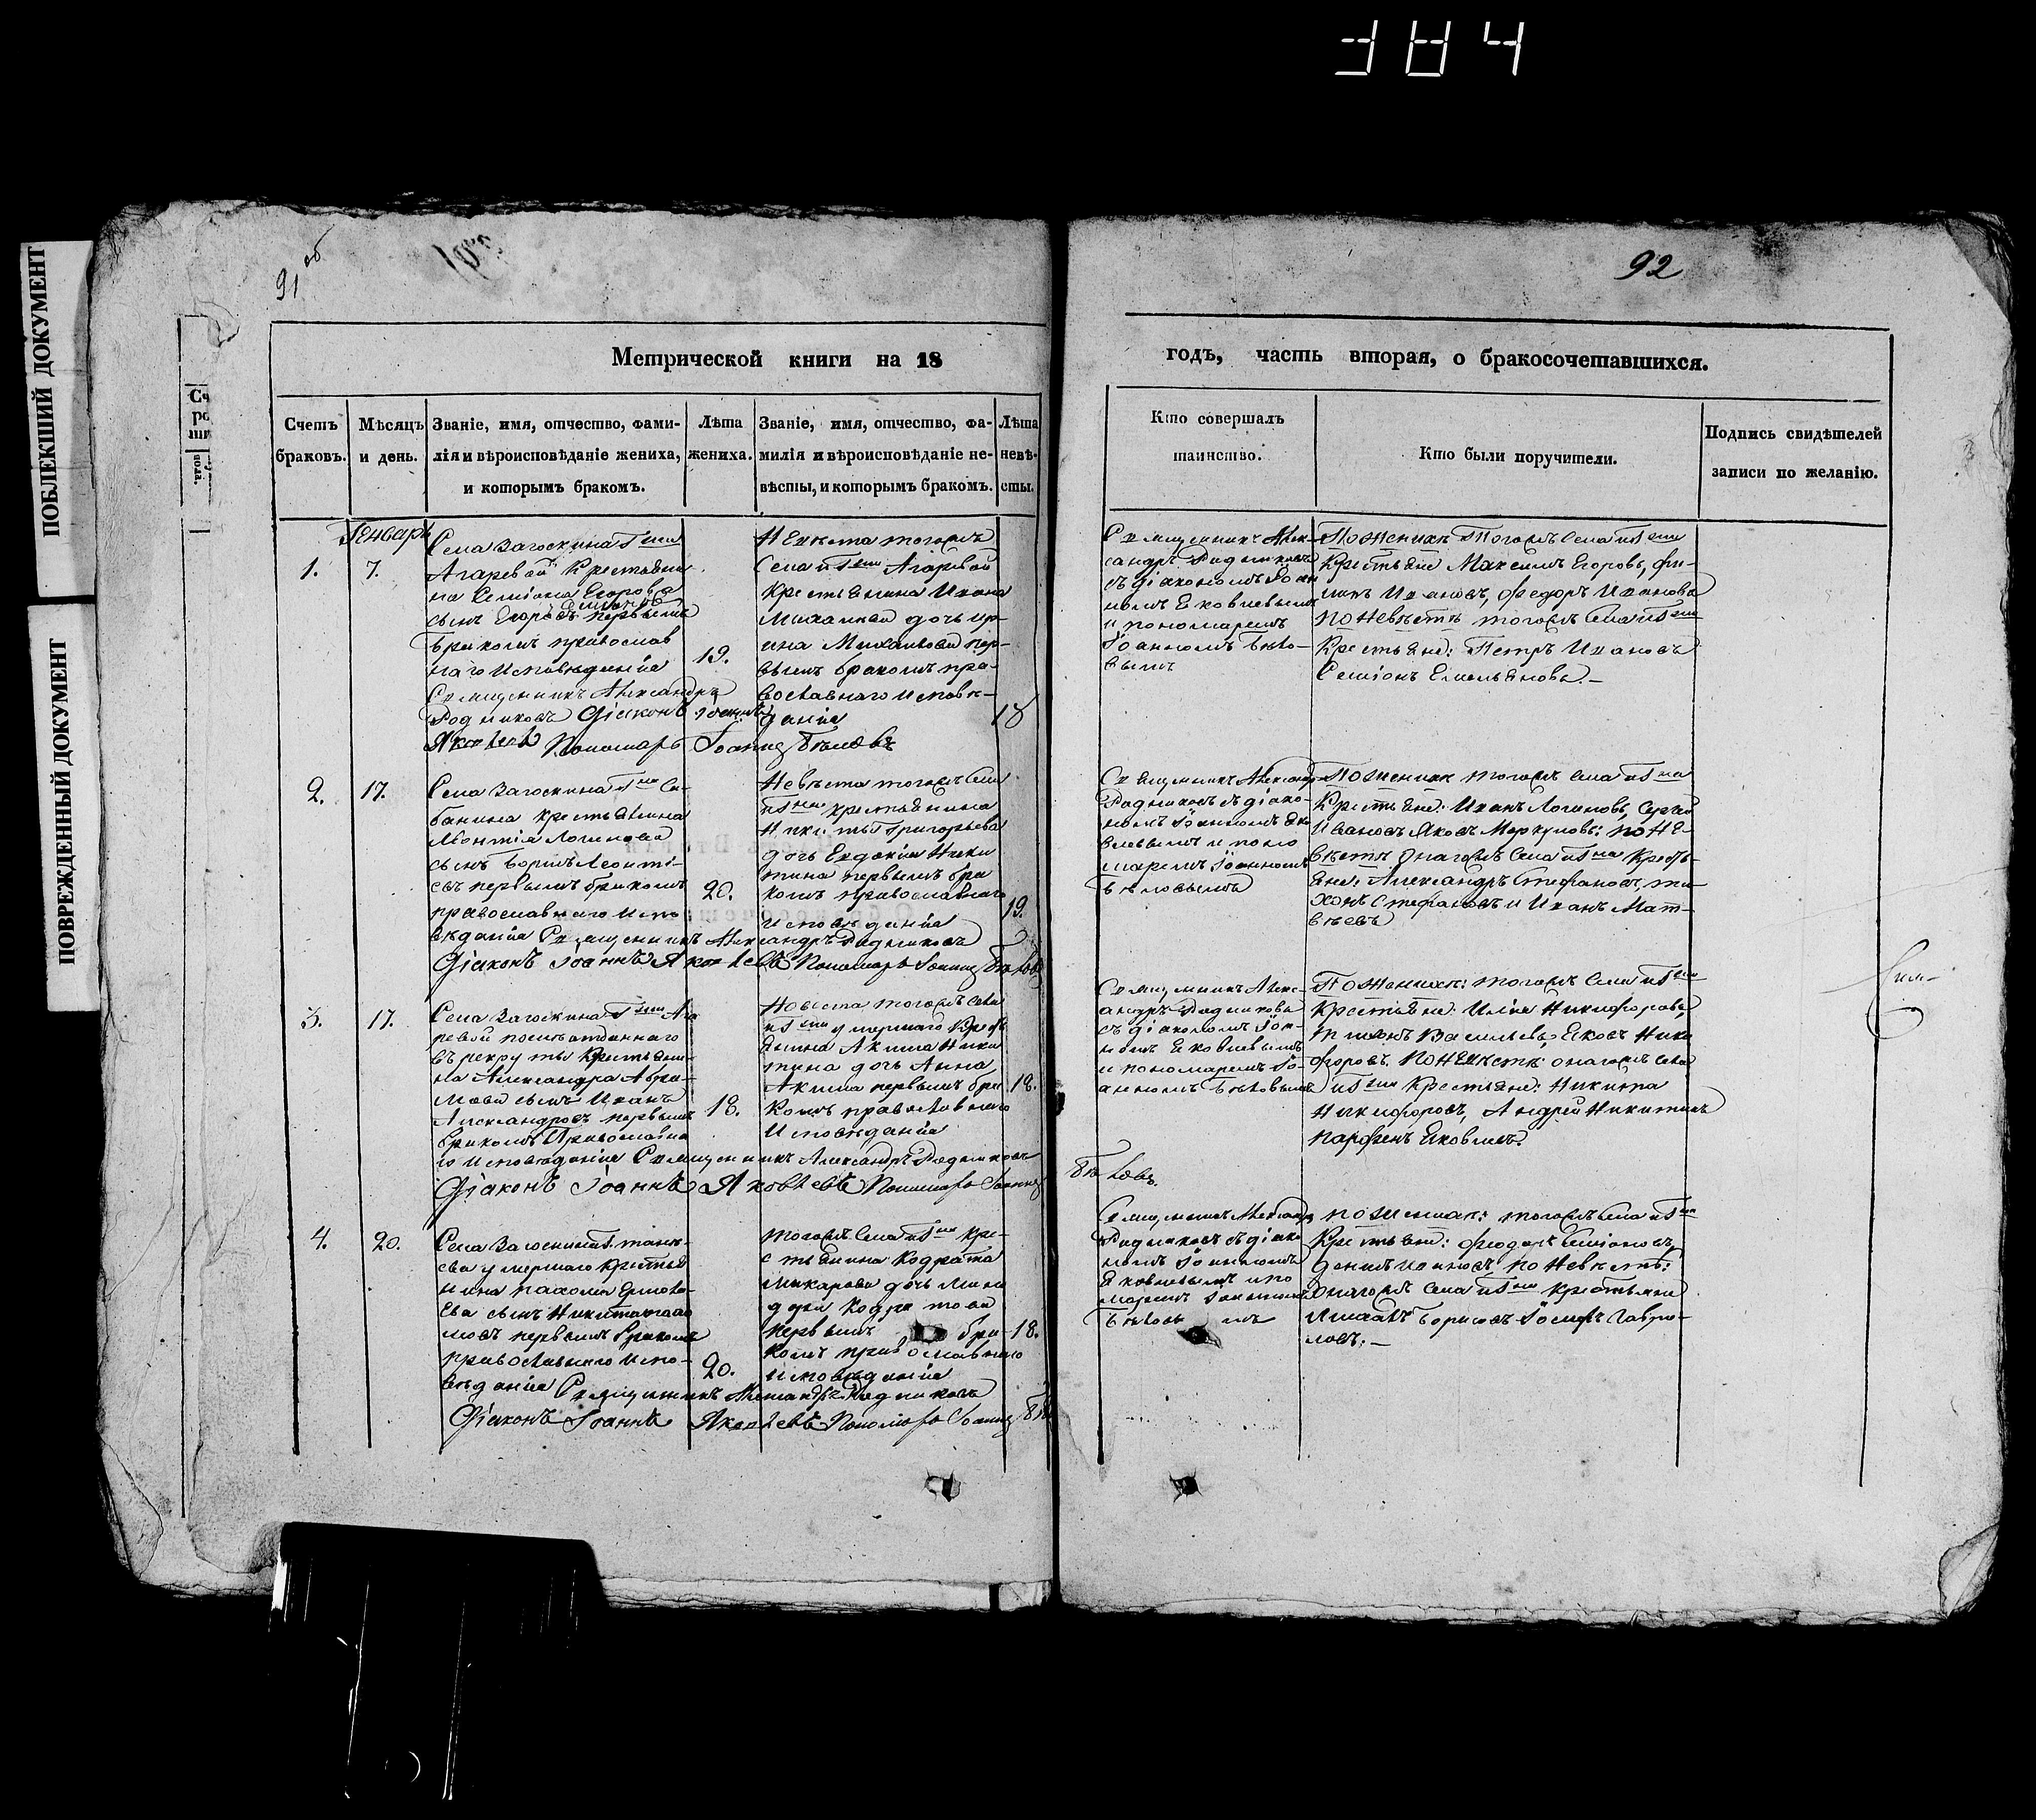 384
ПОБЛЕКШИЙ ДОКУМЕНТ
ПОВРЕЖДЕННЫЙ ДОКУМЕНТ
91 об
92
Метрической книги на 18
Счетъ браковъ.
Мѣсяцъ и день.
Званіе, имя, отчество, фами-
лія и вѣроисповѣданіе жениха,
и которымъ бракомъ.
Лѣта
жениха.
Званіе, имя, отчество, фа-
милія и вѣроисповѣданіе не-
вѣсты, и которымъ бракомъ.
Лѣта
невѣ-
сты.
годъ, часть вторая, о бракосочетавшихся.
Кто совершалъ
таинство.
Кто были поручители.
Подпись свидѣтелей
записи по желанію.
Генварь
1.
7.
Села Загоскина Гжи
Агаревой крестьяни
на Семіона Егорова
сынъ Егоръ Семіоновъ первымъ
бракомъ православ
наго исповѣданія
19.
Священникъ Александръ
Родниковъ Діаконъ Іоаннъ
Яковлевъ Пономарь Іоаннъ Бѣловъ
Невѣста тогожъ
Села и Гжи Агаревой
крестьянина Ивана
Михайлова дочь Ир-
ина первымъ бракомъ пра-
вославнаго исповѣ-
данія
18
Священникъ Алек-
сандръ Родниковъ
съ діакономъ Іоан
номъ Яковлевымъ
и пономаремъ
Іоанномъ Бѣло-
вымъ
По женихѣ тогожъ Села и Гжи
крестьяне Максимъ Егоровъ, Фи-
липъ Ивановъ, Федоръ Ивановъ
по невѣстѣ тогожъ Села и Гжи
Крестьяне: Петръ Ивановъ
Семіонъ Емельяновъ.—
2.
17.
Села Загоскина Гна Са-
банина крестьянина
Леонтія Логинова
сынъ Борисъ Леонть-
евъ первымъ бракомъ
православнаго испо
вѣданія Священникъ Александръ Родниковъ
Діаконъ Іоаннъ Яковлевъ Пономарь Іоаннъ Бѣловъ
20.
Невѣста тогожъ Села
крестьянина
Никиты Григорьева
дочь Евдокія Ники
тина первымъ бра
комъ православнаго
исповѣданія
19.
Священникъ Александръ
Родниковъ съ діако-
номъ Іоанномъ Яко
влевымъ и поно
маремъ Іоанномъ
Бѣловымъ
По женихѣ тогожъ Села и Гна
Крестьяне: Иванъ Логиновъ, Сергей
Ивановъ Яковъ Меркуловъ: по не-
вѣстѣ онагожъ Села и Гна Кресть-
яне: Александръ Стефановъ, ти-
хонъ Стефановъ и Иванъ Мат-
вѣевъ
3.
17.
Села Загоскина Гжи Ага
ревой отданнаго
въ рекруты крестьяни-
на Александра Абра-
мова сынъ Иванъ
Александровъ первымъ
бракомъ Православна
го исповѣданія Священникъ Александръ Родниковъ
Діаконъ Іоаннъ Яковлевъ Пономарь Іоаннъ
Бѣловъ.
18.
Невѣста тогожъ Села
и Гжи умершаго Кресть
янина Акима Ники
тина дочь Анна
Акимова первымъ бра
комъ православнаго
исповѣданія
18.
Священникъ Алекс-
андръ Родниковъ
съ діакономъ Іоан-
номъ Яковлевымъ
и пономаремъ Іо-
анномъ Бѣловымъ
По женихѣ: тогожъ Села и Гжи
Крестьяне: Илья Никифоровъ,
Васильевъ Яковъ Ники
форовъ. По невѣстѣ: онагожъ Села
и Гжи Крестьяне: Никита
Никифоровъ, Андрей Никитинъ
Парфенъ Яковлевъ.
4.
20.
умершаго крестья
нина Пахома Ермола-
ева сынъ Никита Пахо
мовъ первымъ бракомъ
православнаго испо-
вѣданія Священникъ Александръ Родниковъ
Діаконъ Іоаннъ Яковлевъ Пономарь Іоаннъ Бѣ
20.
тогожъ Села кре-
стьянина Кодрата
Макарова дочь
Кодратова
первымъ бра-
комъ православнаго
исповѣданія
18.
Священникъ Александръ
Родниковъ съ діако
номъ Іоанномъ
Яковлевымъ и по
маремъ Іоанномъ
Бѣлов мъ
По женихѣ: тогожъ Села
Крестьяне: Феодоръ Семіоновъ,
Ивановъ. По невѣстѣ:
онагожъ Села крестьяне
Борисовъ Іосифъ Гаври-
ловъ.—